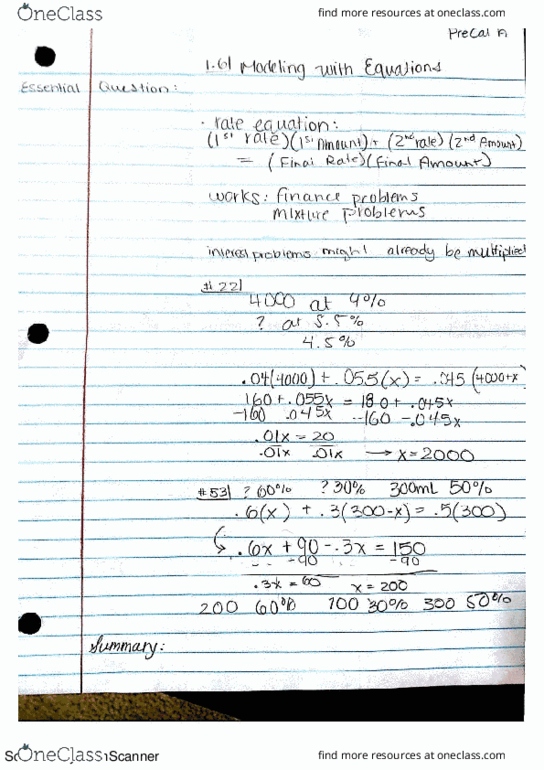 OneClass find more resources at oneclass.com
PreCal A
1.6| Modeling with Equations
Essential Question:
• rate equation:
(1st rate)(1st Amount) + (2nd rate)(2nd Amount)
= (Final Rate)(Final Amount)
works: finance problems
mixture problems
interest problems might already be multiplied
#22|
4000 at 4%
? at 5.5%
4.5%
.04(4000) + .055(x) = .045(4000+x
160 + .055x = 180 + .045x
-160 .045x -160 -.045x
.01x = 20
.01x .01x → x = 2000
#53| ? 60% ? 30% 300mL 50%
.6(x) + .3(300-x) = .5(300)
.6x + 90 - .3x = 150
- 90 -90
.3x = 60 x = 200
200 60% 100 30% 300 50%
Summary:
OneClass Scanner find more resources at oneclass.com